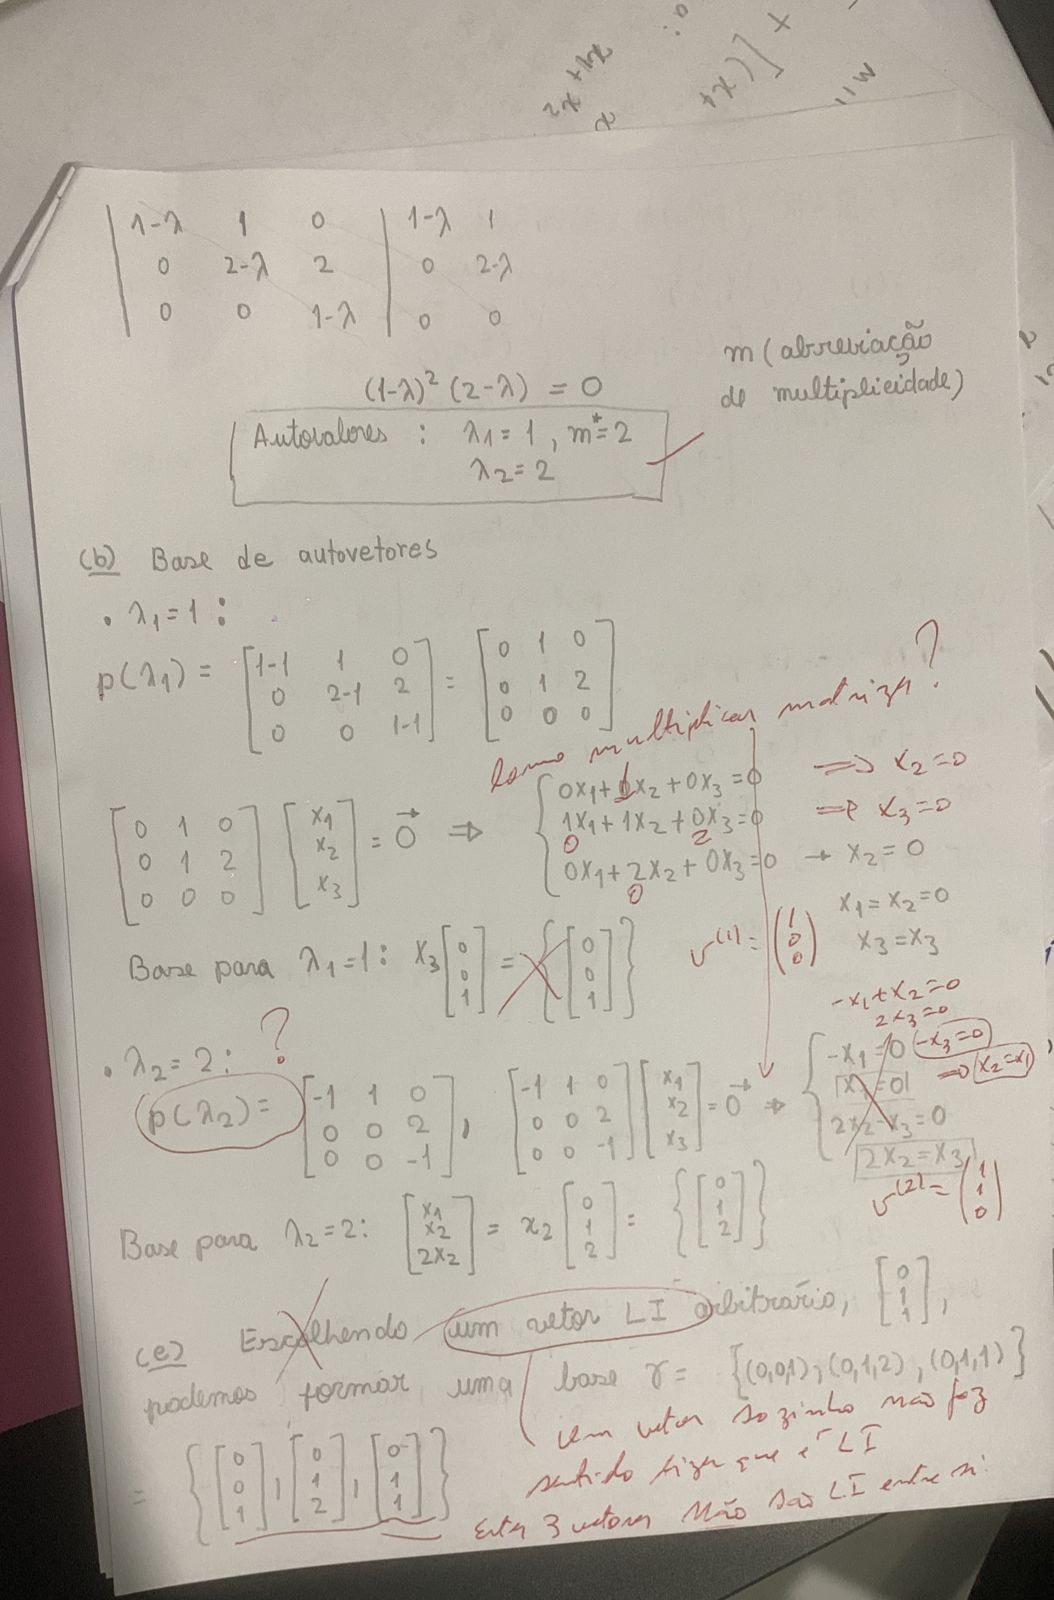 2x+x2
x
[(x+
x
| 1-λ 1 0 | 1-λ 1
| 0 2-λ 2 | 0 2-λ
| 0 0 1-λ | 0 0
(1-λ)² (2-λ) = 0
m (abreviação
de multiplicidade)
Autovalores : λ1 = 1 , m* = 2
λ2 = 2
(b) Base de autovetores
• λ1 = 1 :
p(λ1) = [1-1 1 0; 0 2-1 2; 0 0 1-1] = [0 1 0; 0 1 2; 0 0 0]
Como multiplicar matriza ?
[0 1 0; 0 1 2; 0 0 0] [x1; x2; x3] = 0⃗ ⇒
0x1 + 1x2 + 0x3 = 0 ⇒ x2 = 0
1x1 + 1x2 + 0x3 = 0 ⇒ x3 = 0
0 2
0x1 + 2x2 + 0x3 = 0 → x2 = 0
0
x1 = x2 = 0
x3 = x3
v⁽¹⁾ = (1; 0; 0)
Base para λ1 = 1 : x3 [0; 0; 1] = {[0; 0; 1]}
-x1 + x2 = 0
2x3 = 0
-x3 = 0
⇒ x2 = x1
• λ2 = 2 : ?
p(λ2) = [-1 1 0; 0 0 2; 0 0 -1] , [-1 1 0; 0 0 2; 0 0 -1] [x1; x2; x3] = 0⃗ ⇒
-x1 = 0
x1 = 0
2x2 - x3 = 0
2x2 = x3
v⁽²⁾ = (1; 1; 0)
Base para λ2 = 2 : [x1; x2; 2x2] = x2 [0; 1; 2] = {[0; 1; 2]}
(c) Escolhendo um vetor LI arbitrário, [0; 1; 1] ,
podemos formar uma base γ = {(0,0,1), (0,1,2), (0,1,1)}
= {[0; 0; 1], [0; 1; 2], [0; 1; 1]}
um vetor sozinho não faz
sentido dizer que é LI
Estes 3 vetores não são LI entre si.